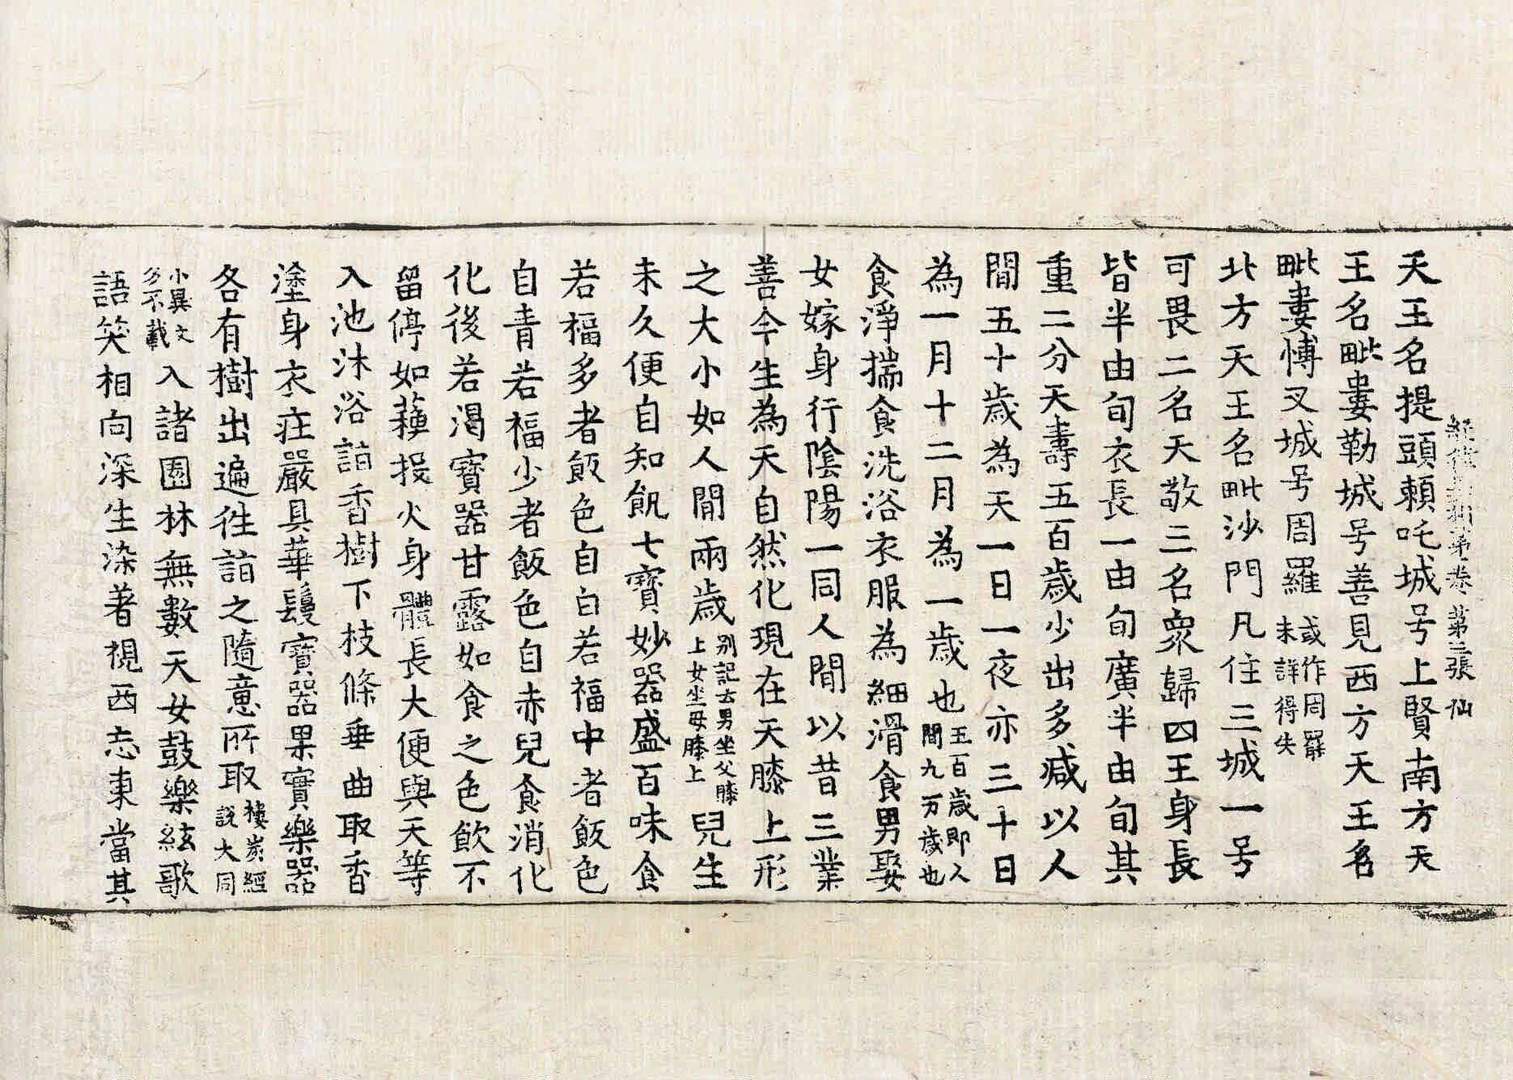 經律異相第一卷 第三張 仙
天王名提頭頼吒城号上賢南方天
王名毗婁勒城号善見西方天王名
毗婁愽叉城号周羅或作周羅未詳得失
北方天王名毗沙門凡住三城一号
可畏二名天敬三名衆歸四王身長
皆半由旬衣長一由旬廣半由旬其
重二分天壽五百歳少出多減以人
間五十歳為天一日一夜亦三十日
為一月十二月為一歳也五百歳即人間九万歳也
食淨揣食洗浴衣服為細滑食男娶
女嫁身行陰陽一同人間以昔三業
善今生為天自然化現在天膝上形
之大小如人間兩歳别記云男坐父膝上女坐母膝上兒生
未久便自知飢七寶妙器盛百味食
若福多者飯色自白若福中者飯色
自青若福少者飯色自赤兒食消化
化後若渴寶器甘露如食之色飲不
留停如蘓投火身體長大便與天等
入池沐浴詣香樹下枝條垂曲取香
塗身衣疘嚴具華鬘寶器果寶樂器
各有樹出遍徃詣之隨意所取樓炭經説大同
小異文多不載入諸園林無數天女鼓樂絃歌
語笑相向深生染著視西忘東當其